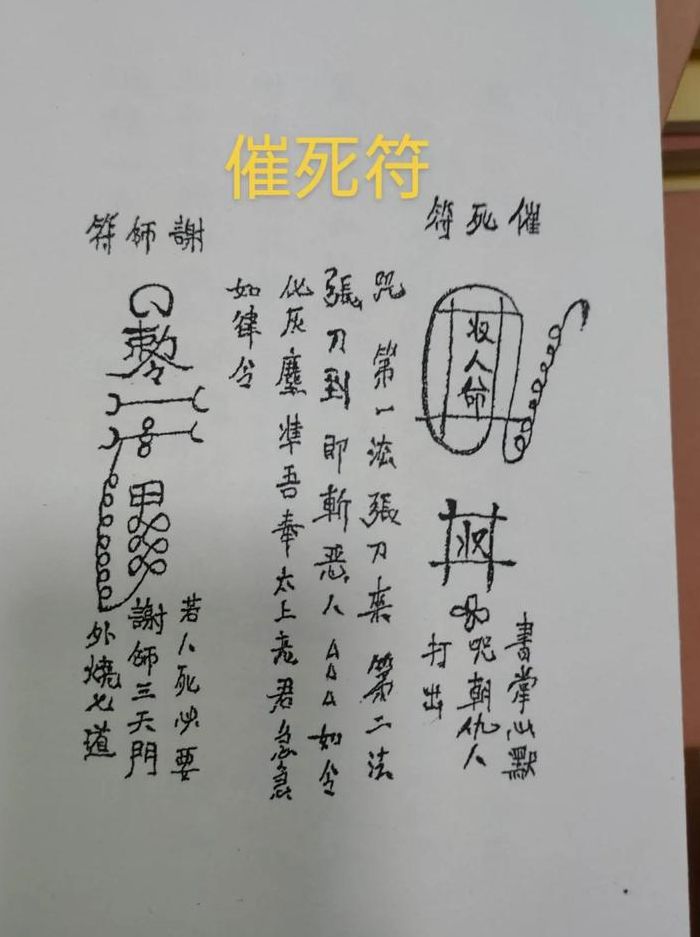 催死符
催死符
收人命
收
書掌心默
咒朝仇人
打出
咒 第一法張刀來 第二法
張刀到即斬惡人△△△如令
化灰塵准吾奉太上老君急急
如律令
謝師符
敕令
若人死必要
謝師三天門
外燒七道